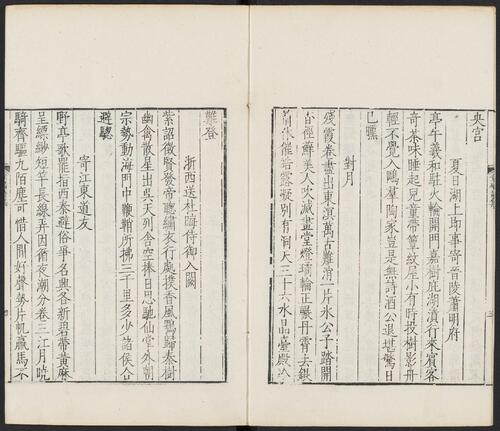 央宮
夏日湖上即事寄晉陵蕭明府
亭午羲和駐火輪開門嘉樹庇湖濆行來賓客
奇茶味睡起兒童帶簟紋屋小有時投樹影舟
輕不覺入鷗羣陶家豈是無詩酒公退堪驚日
已曛
對月
殘霞卷盡出東溟萬古難消一片氷公子踏開
香徑蘚美人吹滅畫堂燈瓊輪正輾丹霄去銀
箭休催皓露凝別有洞天三十六水晶臺殿冷
難登
浙西送杜晦侍御入關
紫詔徵賢發帝聰繡衣行處撲香風鶚歸秦樹
幽禽散星出吳天列舍空捧日思馳仙掌外朝
宗勢動海門中鞭鞘所拂三千里多少諸侯合
避驄
寄江東道友
野亭歌罷指西秦避俗爭名興各新碧帶黃麻
呈縹緲短竿長線弄因循夜潮分卷三江月曉
騎齊驅九陌塵可惜人間好聲勢片帆羸馬不